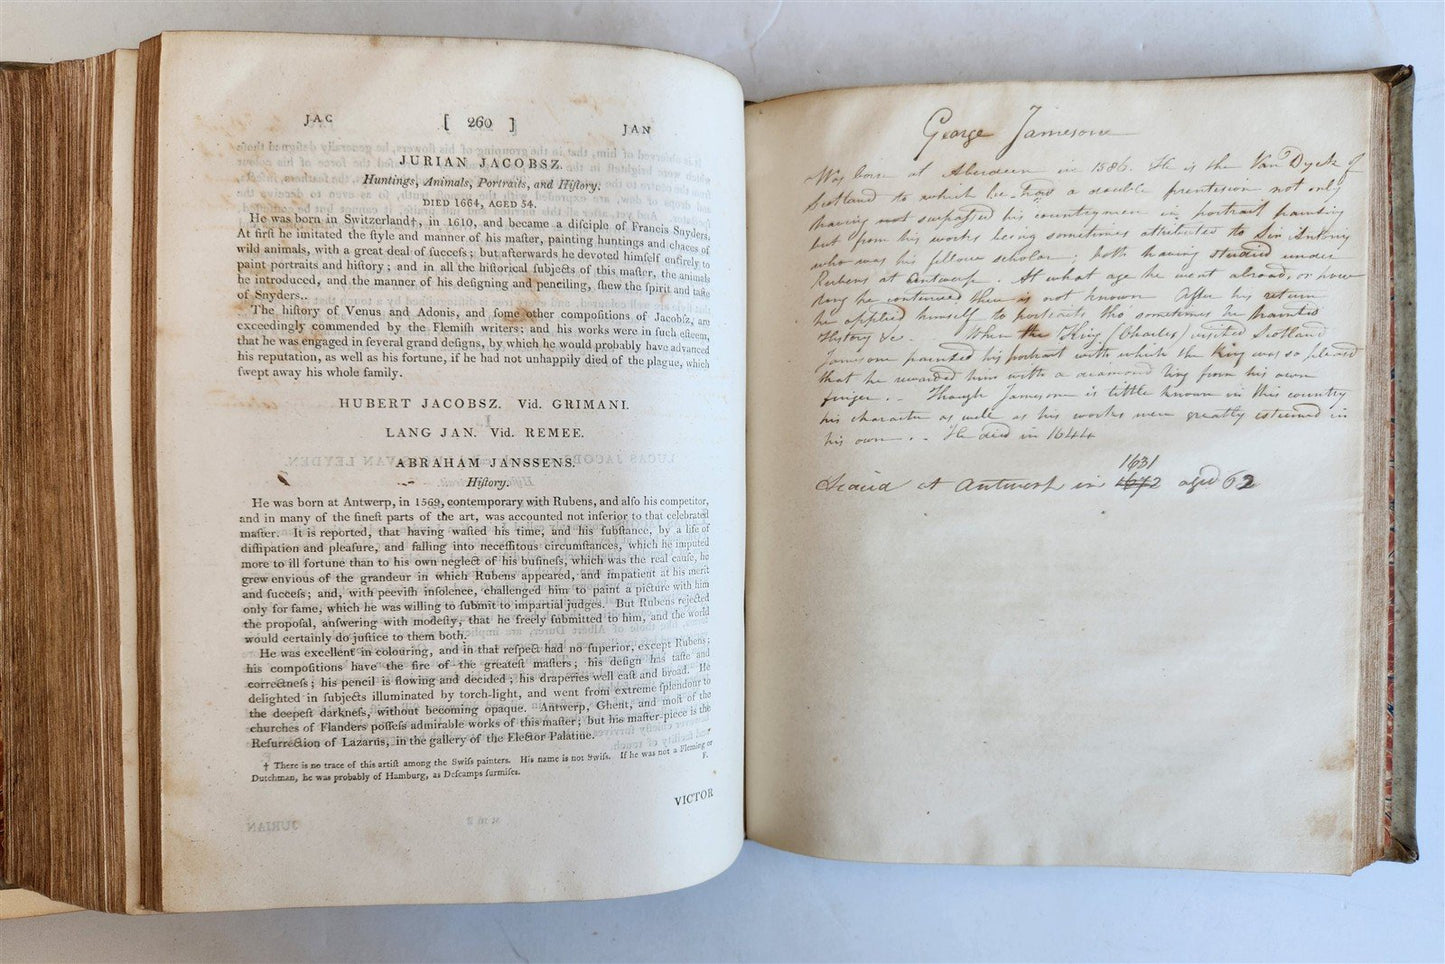 JAC [ 260 ] JAN
JURIAN JACOBSZ.
Huntings, Animals, Portraits, and Hiſtory.
DIED 1664, AGED 54.
He was born in Switzerland†, in 1610, and became a diſciple of Francis Snyders.
At firſt he imitated the ſtyle and manner of his maſter, painting huntings and chaces of
wild animals, with a great deal of ſucceſs; but afterwards he devoted himſelf entirely to
paint portraits and hiſtory; and in all the hiſtorical ſubjects of this maſter, the animals
he introduced, and the manner of his deſigning and penciling, ſhew the ſpirit and taſte
of Snyders..
The hiſtory of Venus and Adonis, and ſome other compoſitions of Jacobſz, are
exceedingly commended by the Flemiſh writers; and his works were in ſuch eſteem,
that he was engaged in ſeveral grand deſigns, by which he would probably have advanced
his reputation, as well as his fortune, if he had not unhappily died of the plague, which
ſwept away his whole family.
HUBERT JACOBSZ. Vid. GRIMANI.
LANG JAN. Vid. REMEE.
ABRAHAM JANSSENS.
Hiſtory.
He was born at Antwerp, in 1569, contemporary with Rubens, and alſo his competitor,
and in many of the fineſt parts of the art, was accounted not inferior to that celebrated
maſter. It is reported, that having waſted his time, and his ſubſtance, by a life of
diſſipation and pleaſure, and falling into neceſſitous circumſtances, which he imputed
more to ill fortune than to his own neglect of his buſineſs, which was the real cauſe, he
grew envious of the grandeur in which Rubens appeared, and impatient at his merit
and ſucceſs; and, with peeviſh inſolence, challenged him to paint a picture with him
only for fame, which he was willing to ſubmit to impartial judges. But Rubens rejected
the propoſal, anſwering with modeſty, that he freely ſubmitted to him, and the world
would certainly do juſtice to them both.
He was excellent in colouring, and in that reſpect had no ſuperior, except Rubens;
his compoſitions have the fire of the greateſt maſters; his deſign has taſte and
correctneſs; his pencil is flowing and decided; his draperies well caſt and broad. He
delighted in ſubjects illuminated by torch-light, and went from extreme ſplendour to
the deepeſt darkneſs, without becoming opaque. Antwerp, Ghent, and moſt of the
churches of Flanders poſſeſs admirable works of this maſter; but his maſter-piece is the
Reſurrection of Lazarus, in the gallery of the Elector Palatine.
† There is no trace of this artiſt among the Swiſs painters. His name is not Swiſs. If he was not a Fleming or
Dutchman, he was probably of Hamburg, as Deſcamps ſurmiſes. F.
VICTOR
George Jamesone
Was born at Aberdeen in 1586. He is the Van Dyck of
Scotland to which he has a double pretension not only
having surpassed his countrymen in portrait painting
but from his works being sometimes attributed to Sir Antony
who was his fellow scholar; both having studied under
Rubens at Antwerp. At what age he went abroad, or how
long he continued there is not known After his return
he applied himself to portraits tho sometimes he painted
History &c. When the King (Charles) visited Scotland
Jamesone painted his portrait with which the King was so pleased
that he rewarded him with a diamond ring from his own
finger. - Though Jamesone is little known in this country
his character as well as his works were greatly esteemed in
his own. - He died in 1644
1631
at Antwerp in 1672 aged 62